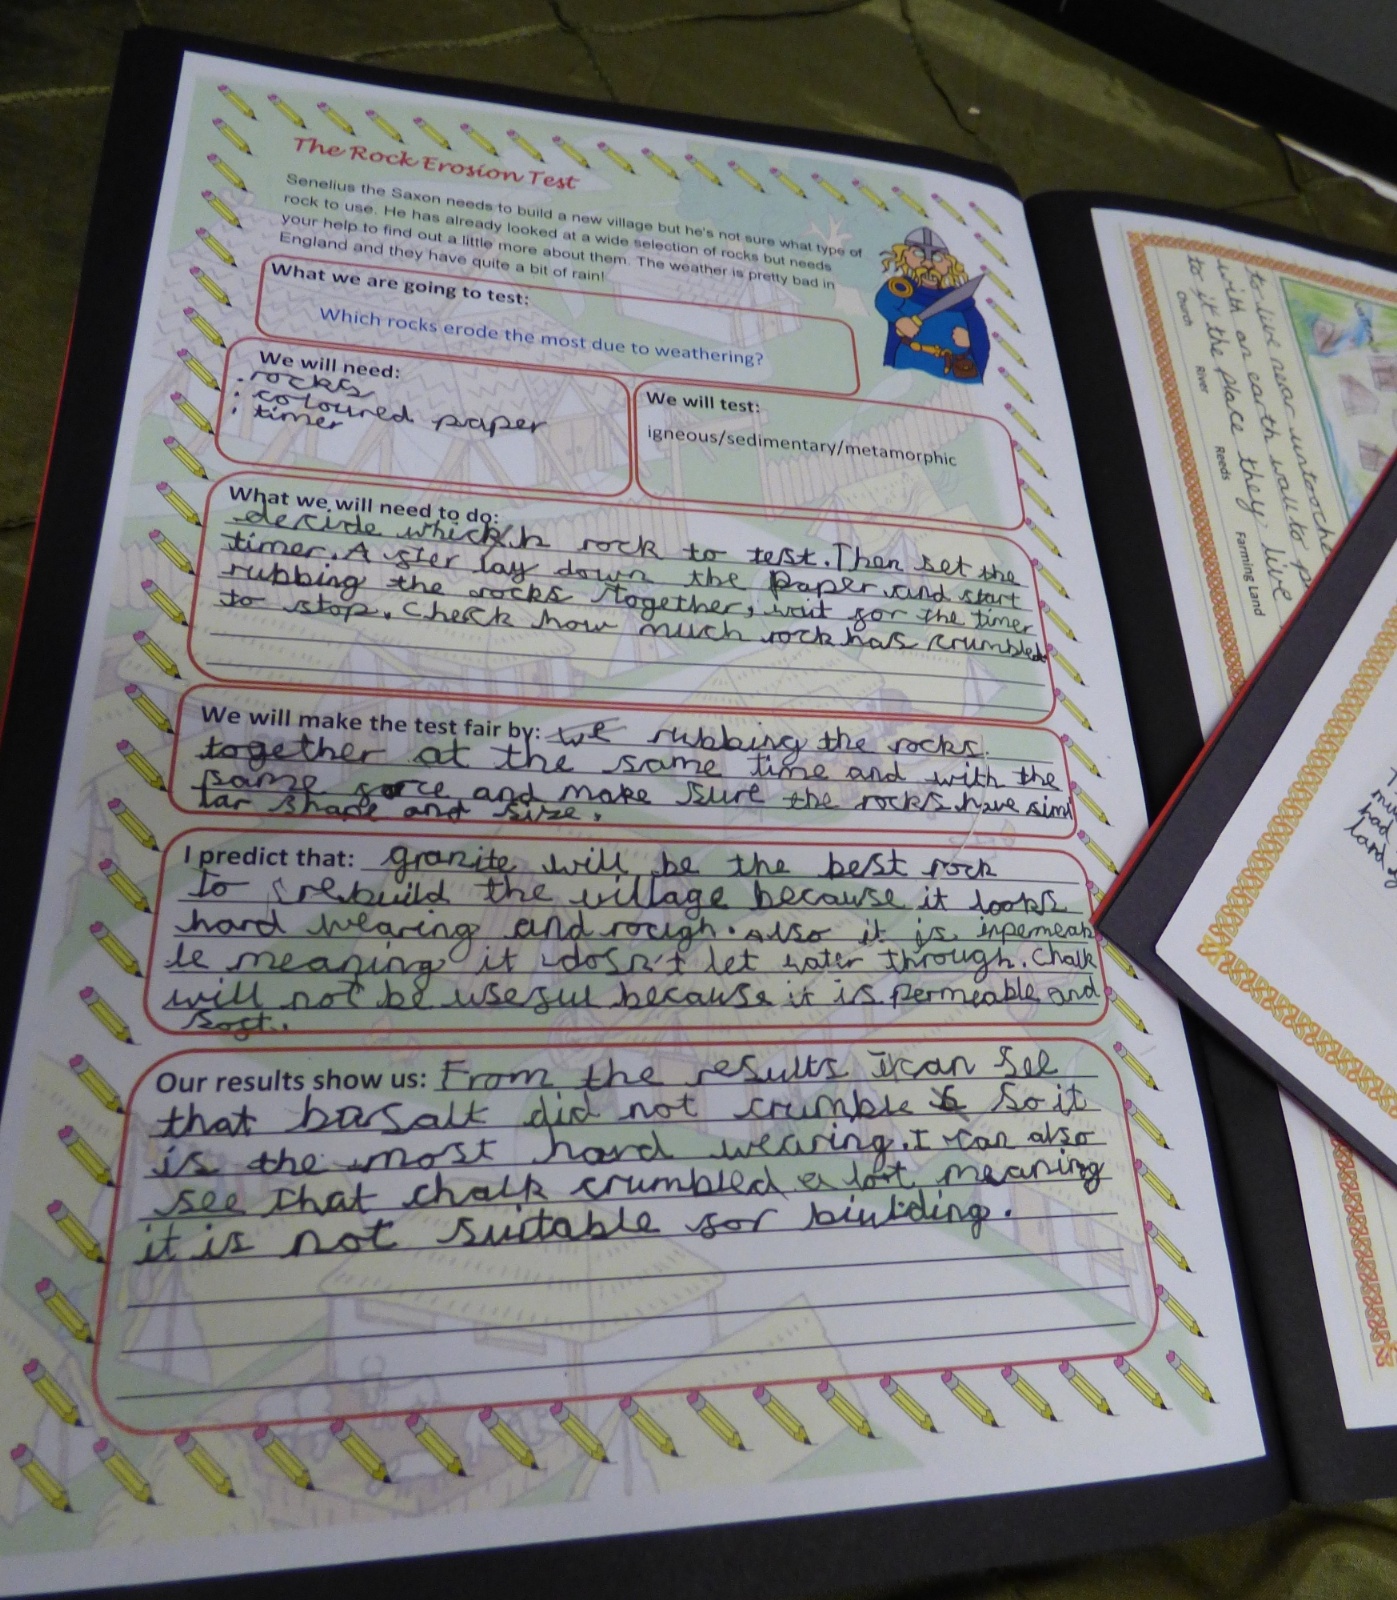 The Rock Erosion Test
Senelius the Saxon needs to build a new village but he's not sure what type of
rock to use. He has already looked at a wide selection of rocks but needs
your help to find out a little more about them. The weather is pretty bad in
England and they have quite a bit of rain!
What we are going to test:
Which rocks erode the most due to weathering?
We will need:
. rocks
. coloured paper
. timer
We will test:
igneous/sedimentary/metamorphic
What we will need to do:
decide which rock to test. Then set the
timer. After lay down the paper and start
rubbing the rocks together, wait for the timer
to stop. Check how much rock has crumbled
We will make the test fair by: we rubbing the rocks
together at the same time and with the
same force and make sure the rocks have simi
lar shape and size.
I predict that: granite will be the best rock
to rebuild the village because it looks
hard wearing and rough. Also it is inpemeab
le meaning it dosn't let water through. Chalk
will not be useful because it is permeable and
soft.
Our results show us: From the results I can see
that basalt did not crumble so it
is the most hard wearing. I can also
see that chalk crumbled a lot meaning
it is not suitable for biulding.
to live near
with an earth wall to
to it the place they live
Church
River
Reeds
Farming Land
had